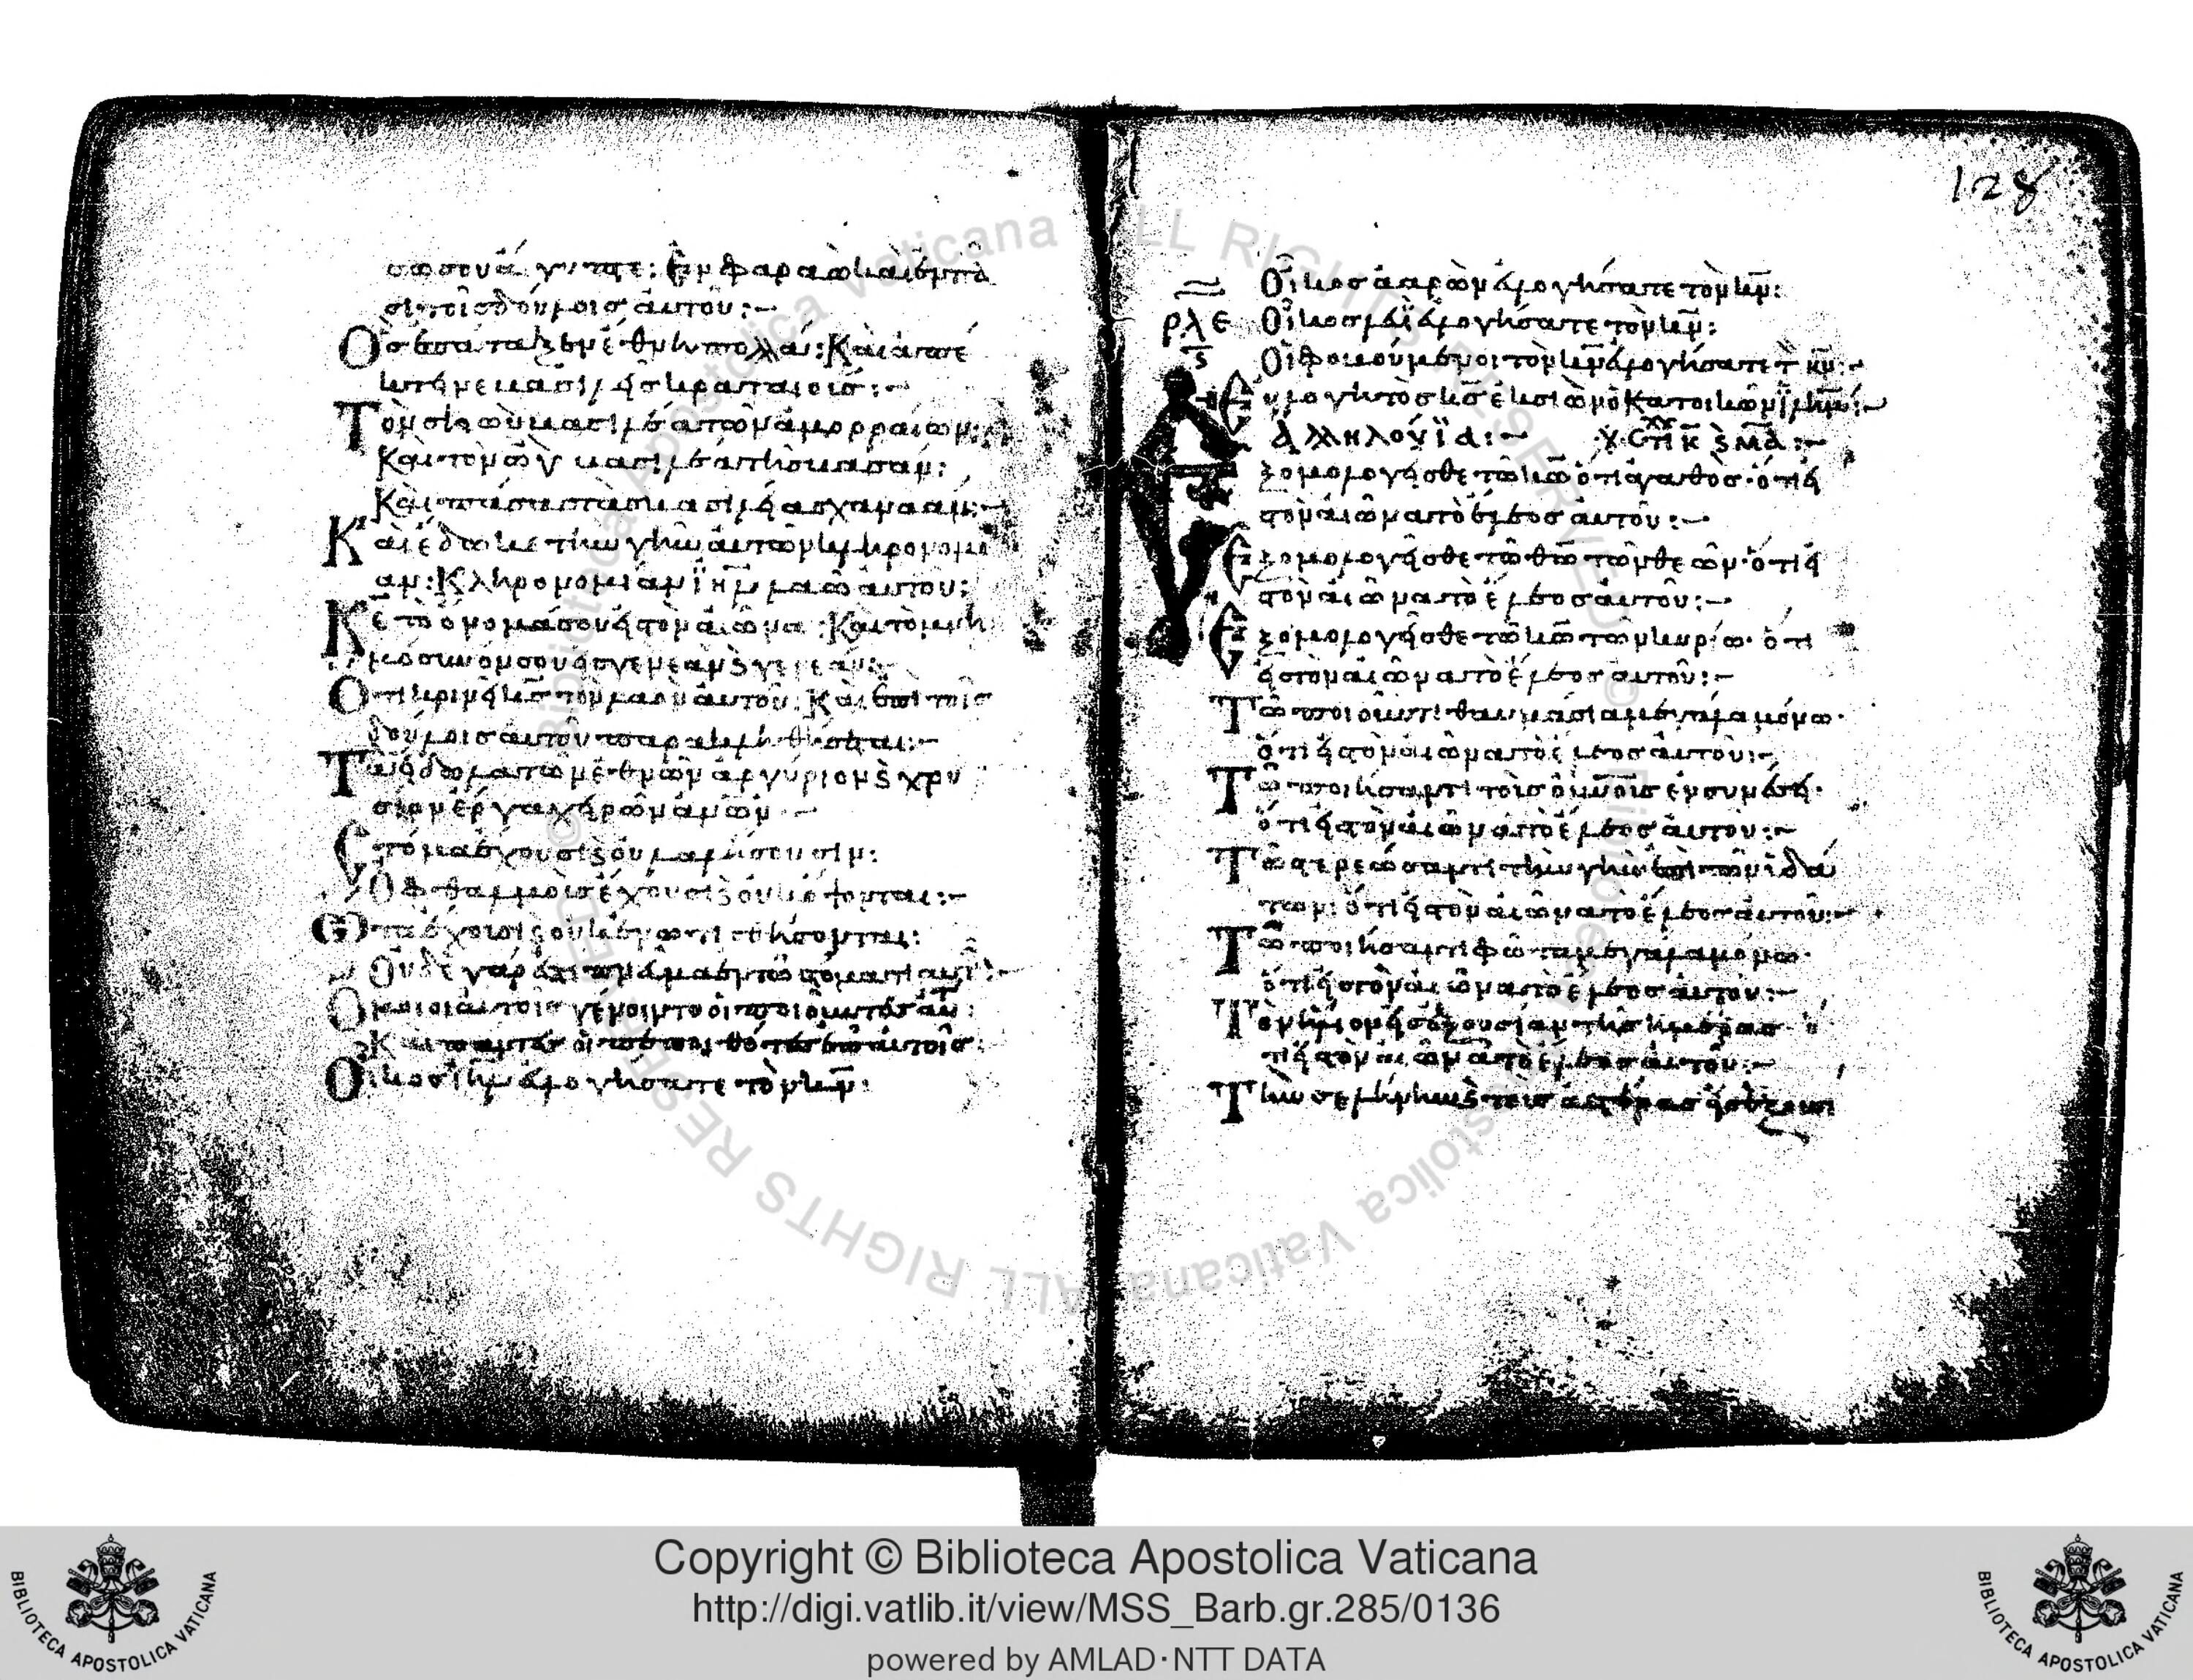 σω σου αίγυπτε: Ἐν φαραὼ καὶ ἐν πᾶ
σι τοῖς δούλοις αὐτοῦ:~
Ὃς ἐπάταξεν ἔθνη πολλά: Καὶ ἀπέ
κτεινε βασιλεῖς κραταιούς:~
Τὸν σιὼν βασιλέα τῶν ἀμορραίων:
Καὶ τὸν ὢγ βασιλέα τῆς βασάν:
Καὶ πάσας τὰς βασιλείας χαναάν:~
Καὶ ἔδωκε τὴν γῆν αὐτῶν κληρονομί
αν: Κληρονομίαν ἰη̅λ λαῶ αὐτοῦ:
Κε̅ τὸ ὄνομά σου εἰς τὸν αἰῶνα: Καὶ τὸ μνη
μόσυνόν σου εἰς γενεὰν ϗ γενεάν:~
Ὅτι κρινεῖ κς̅ τὸν λαὸν αὐτοῦ: Καὶ ἐπὶ τοῖς
δούλοις αὐτοῦ παρακληθήσεται:~
Τὰ εἴδωλα τῶν ἐθνῶν ἀργύριον ϗ χρυ
σίον ἔργα χειρῶν ἀνῶν:~
Στόμα ἔχουσι ϗ οὐ λαλήσουσιν:
Ὀφθαλμοὺς ἔχουσι ϗ οὐκ ὄψονται:~
Ὦτα ἔχουσι ϗ οὐκ ἐνωτισθήσονται:
Οὐδὲ γάρ ἐστι πνεῦμα ἐν τῶ στόματι αὐτῶν:~
Ὅμοιοι αὐτοῖς γένοιντο οἱ ποιοῦντες αὐτά:
Καὶ πάντες οἱ πεποιθότες ἐπ' αὐτοῖς:
Οἶκος ἰη̅λ εὐλογήσατε τὸν κν̅:
128
Οἶκος ἀαρὼν εὐλογήσατε τὸν κν̅:
ρλε Οἶκος λευῒ εὐλογήσατε τὸν κν̅:
Οἱ φοβούμενοι τὸν κν̅ εὐλογήσατε τ̅ κν̅:~
Εὐλογητὸς κς̅ ἐκ σιὼν ὁ κατοικῶν ἰλημ̅:~
ἀλληλούϊα:~ στι κ̅ϛ̅
ξομολογεῖσθε τῶ κω̅ ὅτι ἀγαθός· ὅτι εἰς
τὸν αἰῶνα τὸ ἔλεος αὐτοῦ:~
Ἐξομολογεῖσθε τῶ θω̅ τῶν θεῶν· ὅτι εἰς
τὸν αἰῶνα τὸ ἔλεος αὐτοῦ:~
Ἐξομολογεῖσθε τῶ κω̅ τῶν κυρίω· ὅτι
εἰς τὸν αἰῶνα τὸ ἔλεος αὐτοῦ:~
Τῶ ποιοῦντι θαυμάσια μεγάλα μόνω·
ὅτι εἰς τὸν αἰῶνα τὸ ἔλεος αὐτοῦ:~
Τῶ ποιήσαντι τοὺς οὐνοὺς ἐν συνέσει·
ὅτι εἰς τὸν αἰῶνα τὸ ἔλεος αὐτοῦ:~
Τῶ στερεώσαντι τὴν γῆν ἐπὶ τῶν ὑδά
των: ὅτι εἰς τὸν αἰῶνα τὸ ἔλεος αὐτοῦ:~
Τῶ ποιήσαντι φῶτα μεγάλα μόνω·
ὅτι εἰς τὸν αἰῶνα τὸ ἔλεος αὐτοῦ:~
Τὸν ἥλιον εἰς ἐξουσίαν τῆς ἡμέρας· ὅ
τι εἰς τὸν αἰῶνα τὸ ἔλεος αὐτοῦ:~
Τὴν σελήνην ϗ τοὺς ἀστέρας εἰς ἐξουσί
Copyright © Biblioteca Apostolica Vaticana
http://digi.vatlib.it/view/MSS_Barb.gr.285/0136
powered by AMLAD·NTT DATA